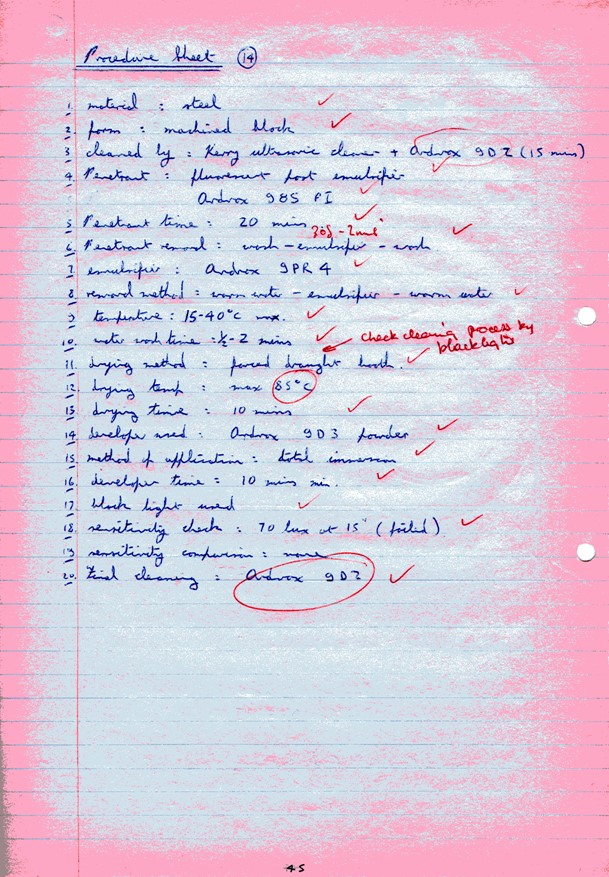 Procedure Sheet 14
1. material : steel
2. form : machined block
3 cleaned by : Kerry ultrasonic cleaner + Ardrox 9D2 (15 mins)
4 Penetrant : fluorescent post emulsifier
Ardrox 985 P1
5 Penetrant time : 20 mins
30s - 2mins
6 Penetrant removal : wash - emulsifier - wash
7 emulsifier : Ardrox 9PR4
8. removal method : warm water - emulsifier - warm water
9 temperature : 15-40°C max.
10. water wash time : ½ - 2 mins
check cleaning process by
blacklight
11. drying method : forced draught booth.
12. drying temp : max 85°C
13 drying time : 10 mins
14 developer used : Ardrox 9D3 powder
15 method of application : total immersion
16 developer time : 10 mins min.
17 black light used
18 sensitivity check : 70 lux at 15" (failed)
19 sensitivity comparison : none
20. Final cleaning : Ardrox 9D2
45